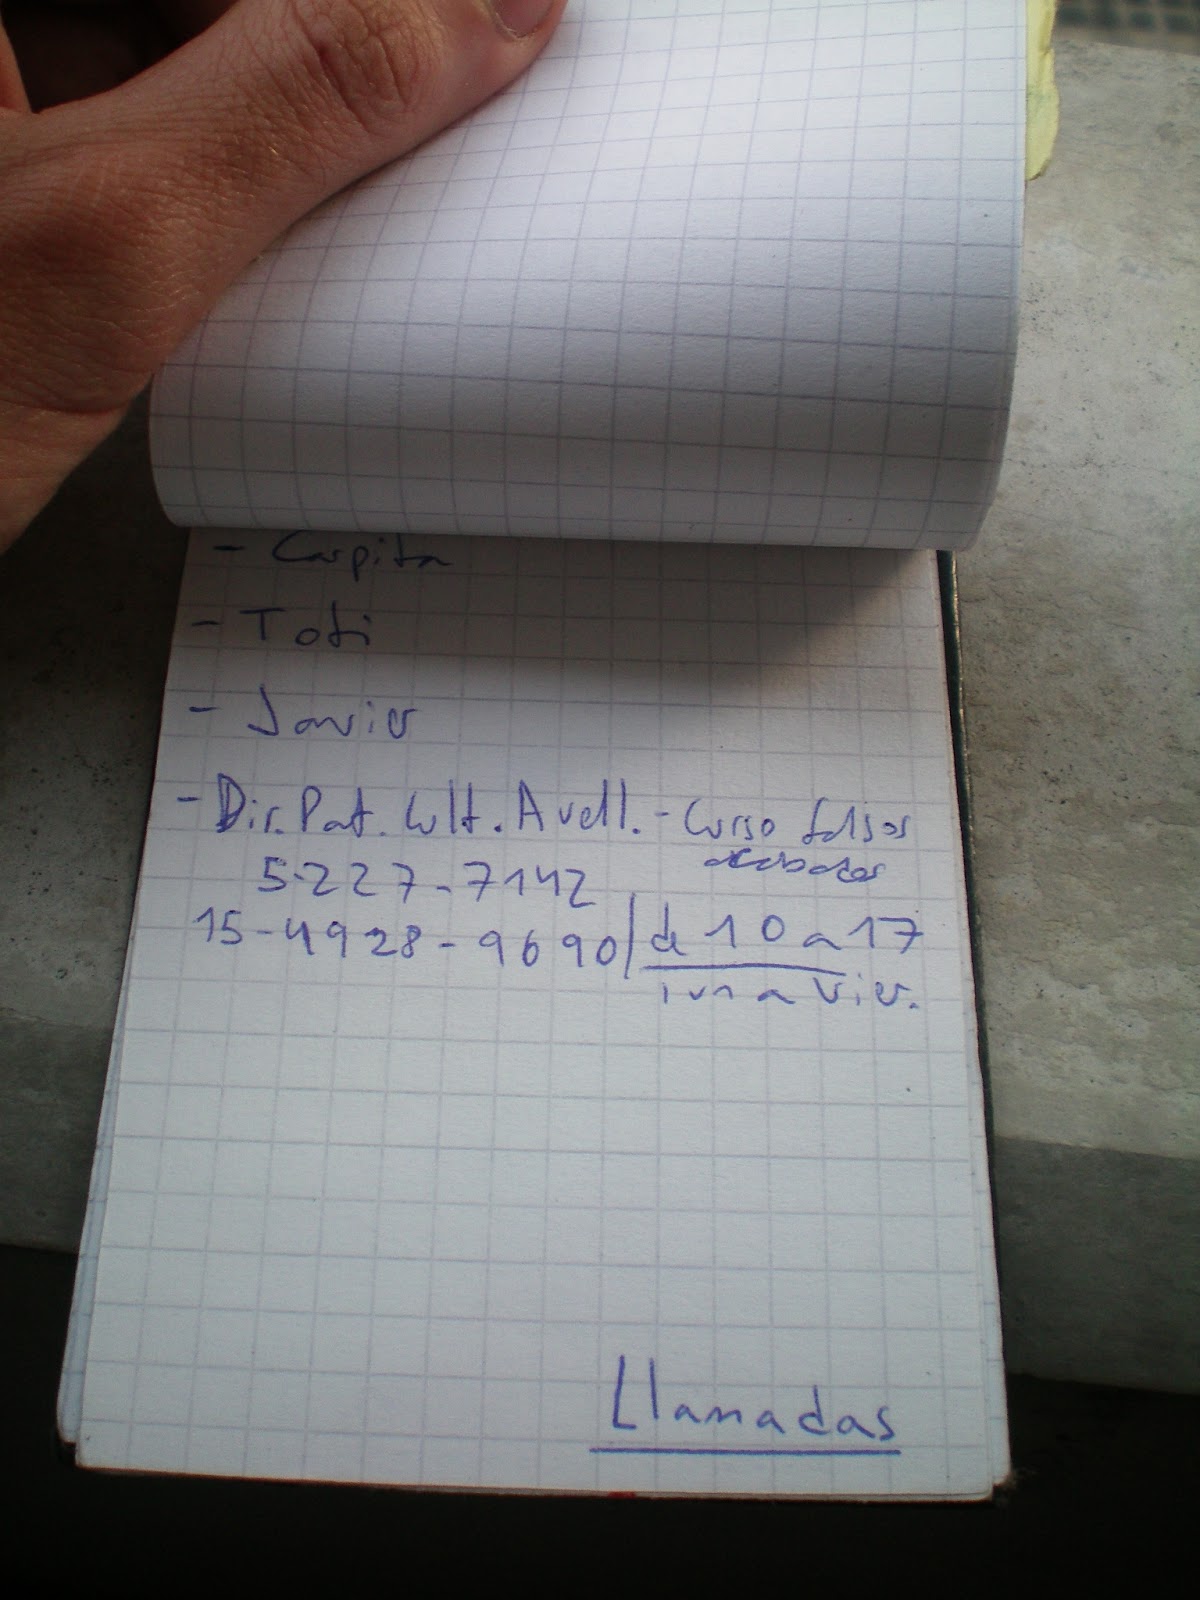 - Carpita
- Toti
- Javier
- Dir. Pat. Cult. Avell. - Curso falsos
acabados
5227-7142
15-4928-9690 / de 10 a 17
lun a Vier.
Llamadas